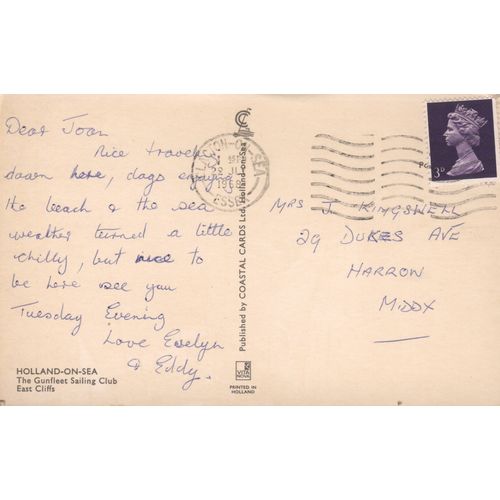 Dear Joan
Nice travel
down here, dogs enjoying
the beach & the sea
weather turned a little
chilly, but nice to
be here see you
Tuesday Evening
Love Evelyn
& Eddy.
HOLLAND-ON-SEA
The Gunfleet Sailing Club
East Cliffs
Published by COASTAL CARDS Ltd, Holland-on-Sea
VITA NOVA
PRINTED IN
HOLLAND
CLACTON-ON-SEA
1968
ESSEX
3D
MRS J. KINGSWELL
29 DUKES AVE
HARROW
MIDDX